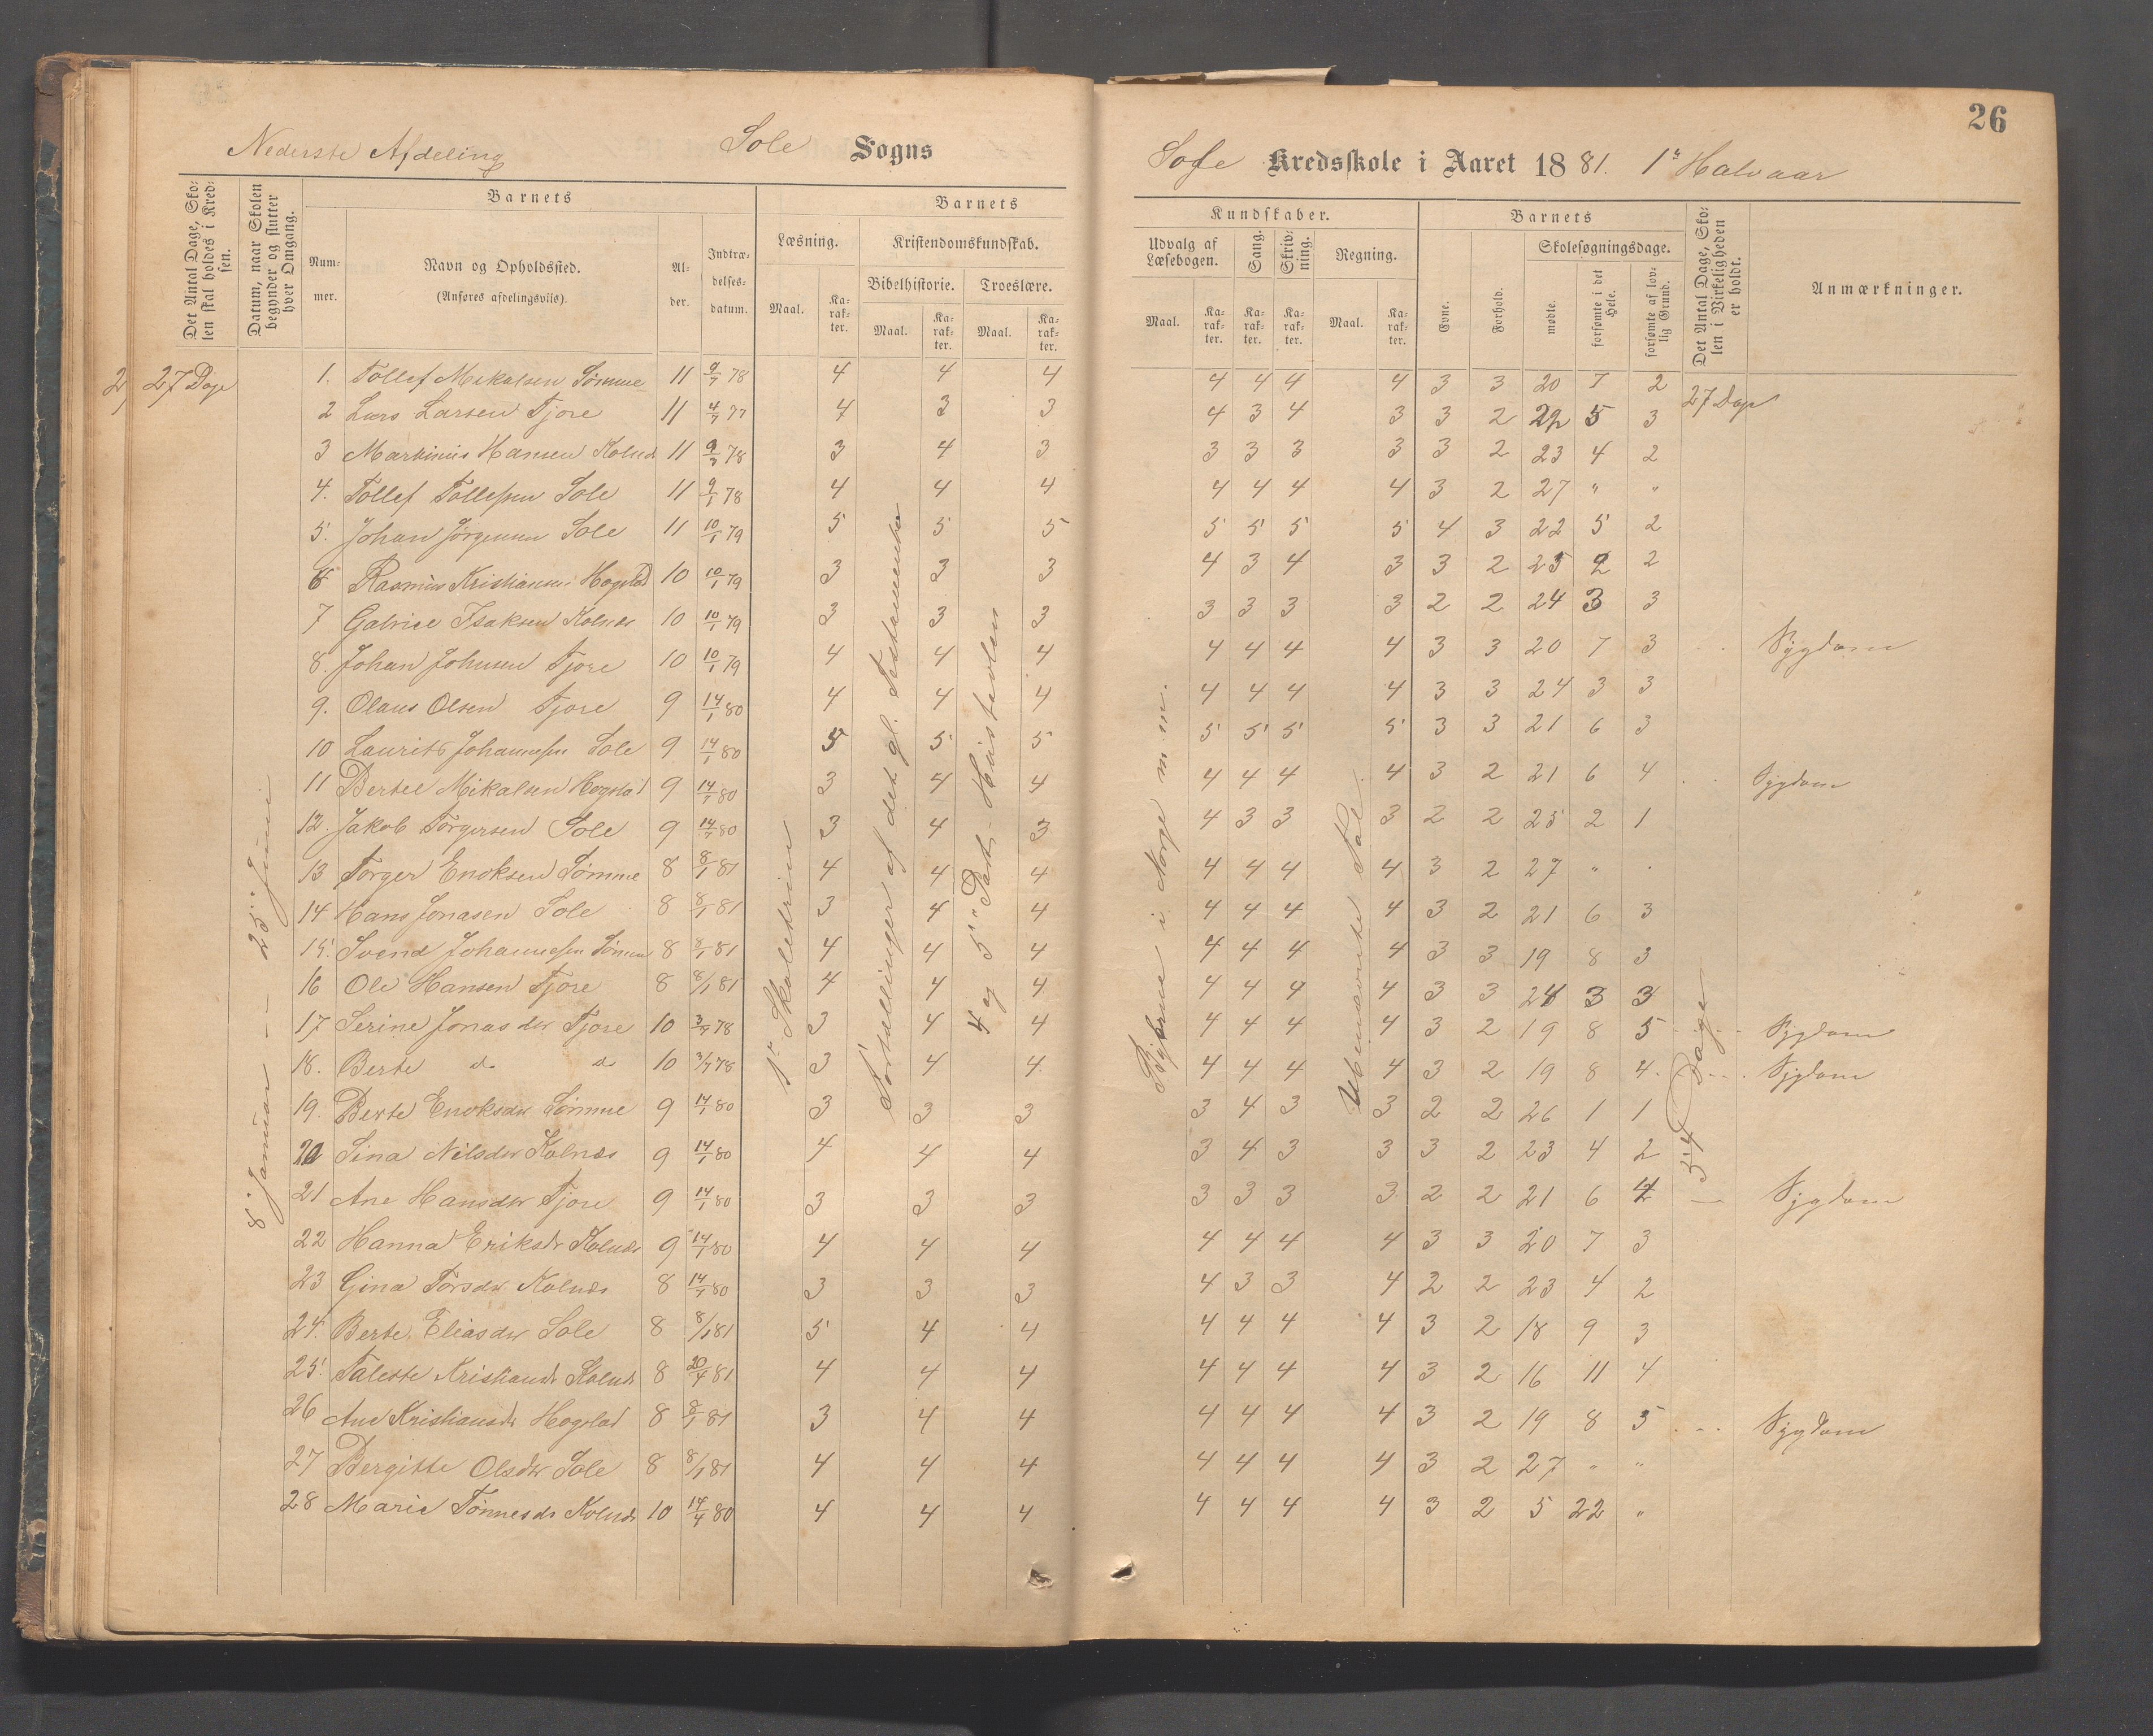 26
Nederste Afdeling Sole Sogns Sole Kredsskole i Aaret 1881. 1ste Halvaar
Det Antal Dage, Skolen skal holdes i Kredsen.
Datum, naar Skolen begynder og slutter hver Omgang.
Barnets
Nummer.
Navn og Opholdssted.
(Anføres afdelingsvils).
Alder.
Indtrædelsesdatum.
Barnets
Læsning.
Maal. Karakter.
Kristendomskundskab.
Bibelhistorie. Troeslære.
Maal. Karakter. Maal. Karakter.
Kundskaber.
Udvalg af Læsebogen. Sang. Skrivning. Regning.
Maal. Karakter. Karakter. Karakter. Maal. Karakter.
Barnets
Evne. Forhold.
Skolesøgningsdage.
mødte. forsømte i det Hele. forsømte af lovlig Grund.
Det Antal Dage, Skolen i Virkeligheden er holdt.
Anmærkninger.
27 Dage
8de Januar -- 25de Juni
1ste Skoletrin
Fortællinger af det gl. Testamente
4 og 5te Part, Hustavlen
Byerne i Norge m. m.
Ubenævnte Tal.
27 Dage
54 Dage
1. Tollef Mikalsen Sømme 11 9/7 78 4 4 4 4 4 4 4 3 3 20 7 2
2 Lars Larsen Tjore 11 4/7 77 4 3 3 4 3 4 3 3 2 22 5 3
3 Martinius Hansen Kolnæs 11 9/7 78 3 4 3 3 3 3 3 3 2 23 4 2
4. Tollef Tollefsen Sole 11 9/1 78 4 4 4 4 4 4 4 3 2 27 " "
5. Johan Jørgensen Sole 11 10/1 79 5 5 5 5 5 5 5 4 3 22 5 2
6 Rasmus Kristiansen Hogstad 10 10/1 79 3 3 3 4 3 4 3 3 2 25 2 2
7 Gabriel Isaksen Kolnæs 10 10/1 79 3 3 3 3 3 3 3 2 2 24 3 3
8. Johan Johnsen Tjore 10 10/1 79 4 4 4 4 4 4 4 3 3 20 7 3 Sygdom
9. Olaus Olsen Tjore 9 14/1 80 4 4 4 4 4 4 4 3 3 24 3 3
10 Laurits Johannesen Sole 9 14/1 80 5 5 5 5 5 5 5 3 3 21 6 3
11 Bertel Mikalsen Hogstad 9 14/1 80 3 4 4 4 4 4 4 3 2 21 6 4 Sygdom
12. Jakob Torgersen Sole 9 14/7 80 3 4 3 4 3 3 3 2 2 25 2 1
13 Torger Enoksen Sømme 8 8/1 81 4 4 4 4 4 4 4 3 2 27 " "
14 Hans Jonasen Sole 8 8/1 81 3 4 4 4 4 4 4 3 2 21 6 3
15. Svend Johannesen Sømme 8 8/1 81 4 4 4 4 4 4 4 3 3 19 8 3
16 Ole Hansen Tjore 8 8/1 81 4 4 4 4 4 4 4 3 3 24 3 3
17 Serine Jonasdtr Tjore 10 3/7 78 3 4 4 4 4 4 4 3 2 19 8 5 Sygdom
18. Berte do do 10 3/7 78 3 4 4 4 4 4 4 3 2 19 8 4 Sygdom
19. Berte Enoksdtr Sømme 9 14/1 80 3 3 3 3 4 3 3 2 2 26 1 1
20 Sina Nilsdtr Kolnæs 9 14/1 80 4 4 4 3 4 3 3 3 2 23 4 2
21 Ane Hansdtr Tjore 9 14/1 80 3 3 3 3 3 3 3 2 2 21 6 4 Sygdom
22 Hanna Eriksdr Kolnæs 9 14/1 80 4 4 4 4 4 4 4 3 3 20 7 3
23 Gina Torsdtr Kolnæs 8 14/1 80 3 3 3 4 3 3 4 2 2 23 4 2
24. Berte Eliasdtr Sole 8 8/1 81 5 4 4 4 4 4 4 3 2 18 9 3
25. Taleste Kristiansdr Kolnæs 8 20/4 81 4 4 4 4 4 4 4 3 2 16 11 4
26 Ane Kristiansdr Hogstad 8 8/1 81 3 4 4 4 4 4 4 3 2 19 8 5 Sygdom
27 Bergitte Olsdtr Sole 8 8/1 81 4 4 4 4 4 4 4 3 2 27 " "
28 Marie Tønnesdr Kolnæs 10 14/4 80 4 4 4 4 4 4 4 3 2 5 22 "